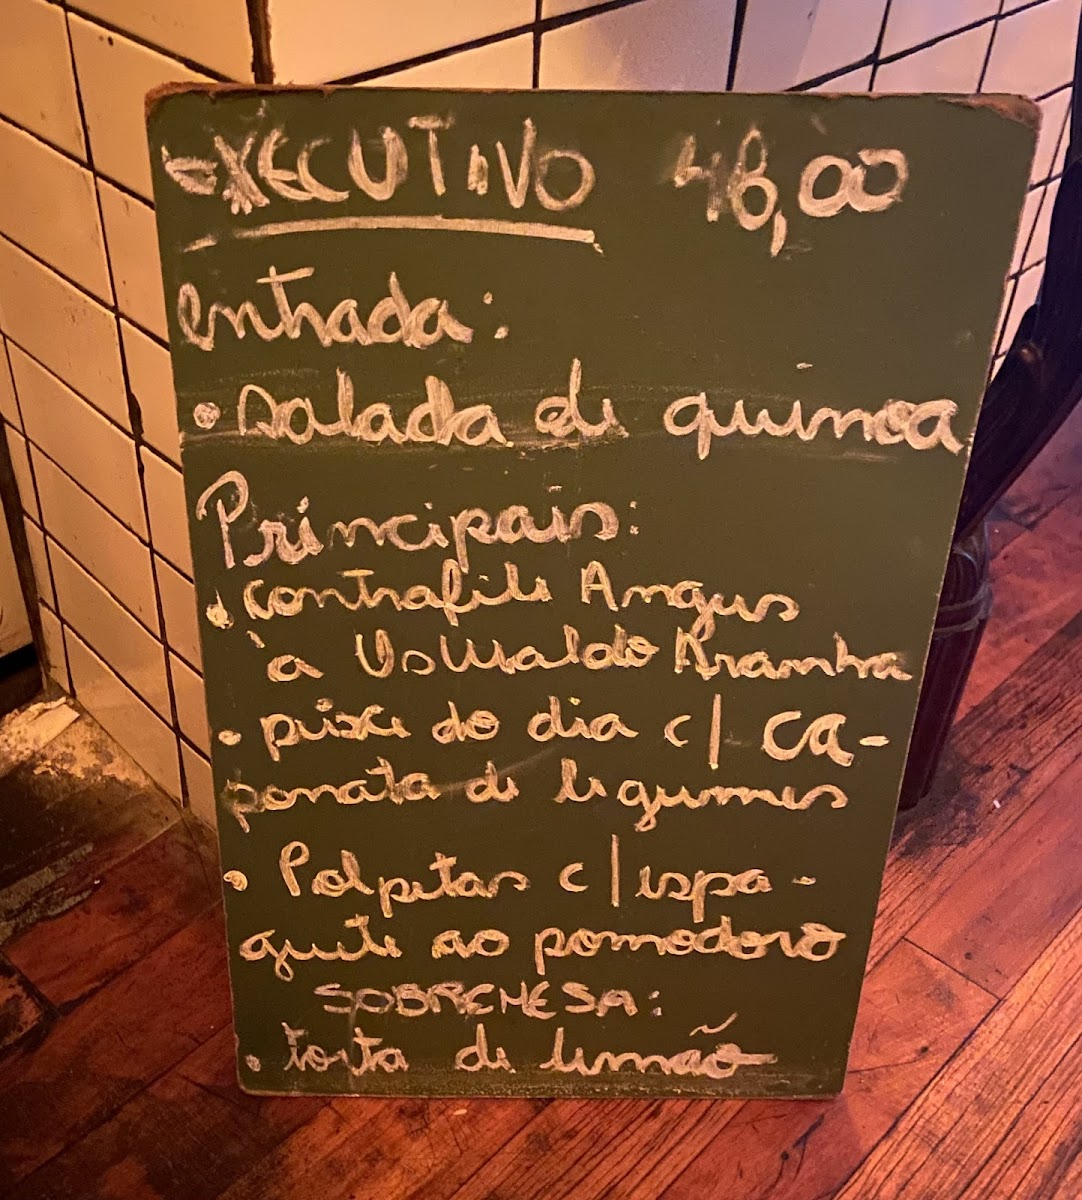 EXECUTIVO 48,00
entrada:
• Salada de quinoa
Principais:
• Contrafile Angus
à Oswaldo Aranha
• peixe do dia c/ ca-
ponata de legumes
• Polpetas c/ espa-
guete ao pomodoro
SOBREMESA:
• torta de limão